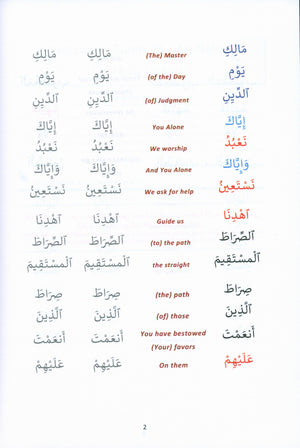 مَالِكِ مَالِكِ (The) Master مَالِكِ
يَوْمِ يَوْمِ (of the) Day يَوْمِ
الدِّينِ الدِّينِ (of) Judgment الدِّينِ
إِيَّاكَ إِيَّاكَ You Alone إِيَّاكَ
نَعْبُدُ نَعْبُدُ We worship نَعْبُدُ
وَإِيَّاكَ وَإِيَّاكَ And You Alone وَإِيَّاكَ
نَسْتَعِينُ نَسْتَعِينُ We ask for help نَسْتَعِينُ
ٱهْدِنَا ٱهْدِنَا Guide us ٱهْدِنَا
ٱلصِّرَاطَ ٱلصِّرَاطَ (to) the path ٱلصِّرَاطَ
ٱلْمُسْتَقِيمَ ٱلْمُسْتَقِيمَ the straight ٱلْمُسْتَقِيمَ
صِرَاطَ صِرَاطَ (the) path صِرَاطَ
ٱلَّذِينَ ٱلَّذِينَ (of) those ٱلَّذِينَ
أَنعَمْتَ أَنعَمْتَ You have bestowed (Your) favors أَنعَمْتَ
عَلَيْهِمْ عَلَيْهِمْ On them عَلَيْهِمْ
2